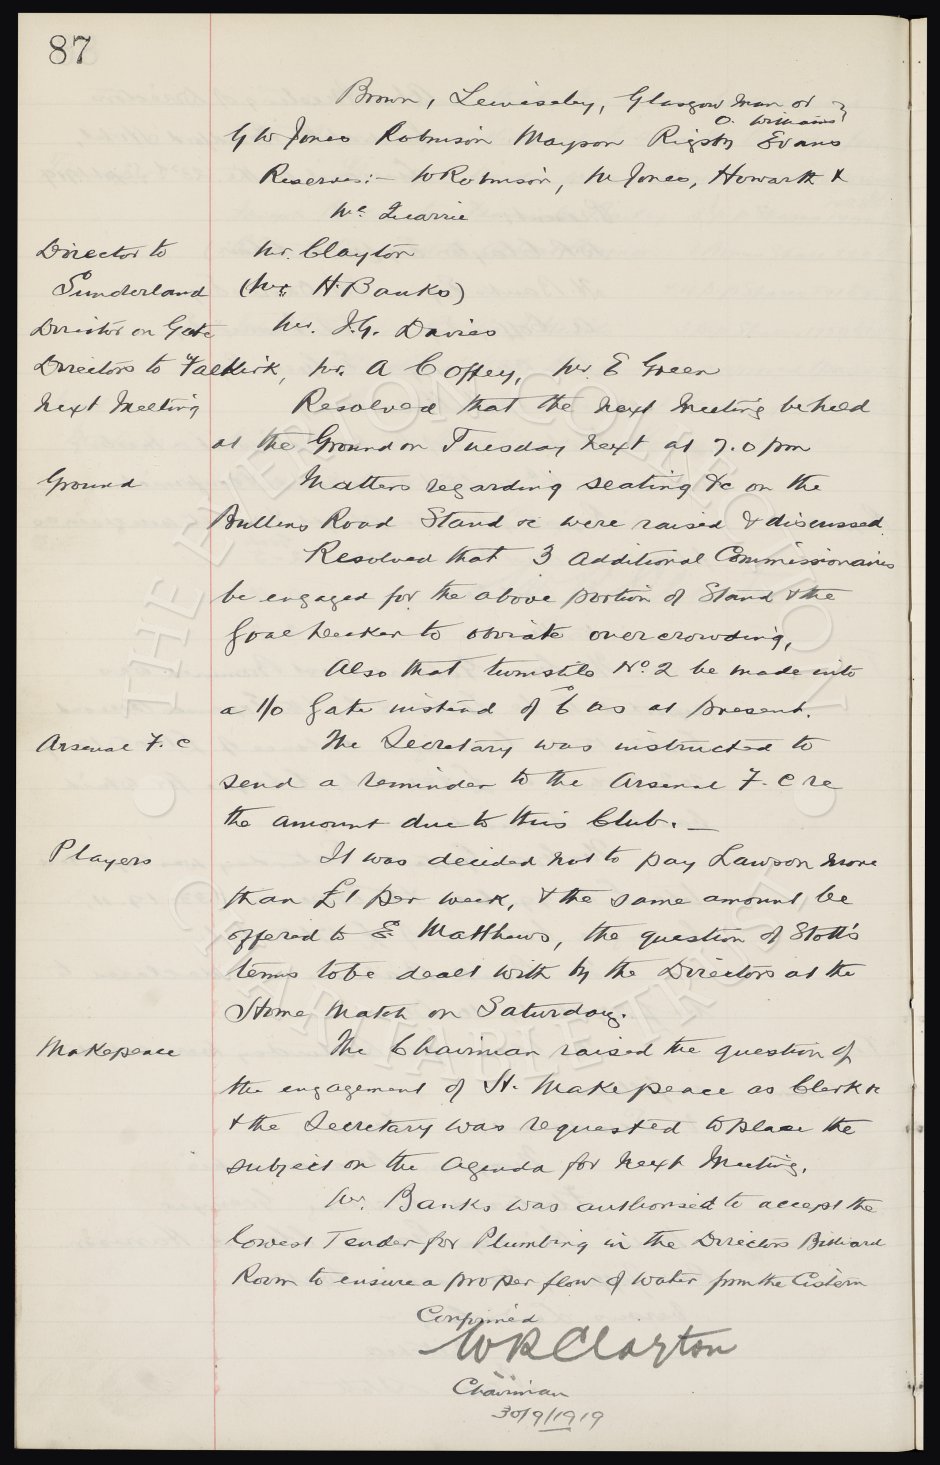 87
Brown, Lewiseley, Glasgow man or }
O. Williams }
G W Jones Robinson Mayson Rigsby Evans
Reserves:- W Robinson, W Jones, Howarth &
Mc Quarrie
Director to Mr. Clayton
Sunderland (Mr H. Banks)
Director on Gate Mr. J.G. Davies
Directors to Falkirk, Mr. A Coffey, Mr. E Green
Next Meeting Resolved that the next Meeting be held
at the Ground on Tuesday next at 7.0 pm
Ground Matters regarding seating &c on the
Bullens Road Stand &c were raised & discussed.
Resolved that 3 additional Commissionaires
be engaged for the above portion of Stand & the
Goal to obviate overcrowding,
Also that turnstile No. 2 be made into
a 1/0 Gate instead of 6 as at present.
Arsenal F. C The Secretary was instructed to
send a reminder to the Arsenal F. C re
the amount due to this Club. —
Players It was decided not to pay Lawson more
than £1 per week, & the same amount be
offered to E Matthews, the question of Stott's
terms to be dealt with by the Directors at the
Home Match on Saturday.
Makepeace The Chairman raised the question of
the engagement of H. Makepeace as Clerk &c
& the Secretary was requested to place the
subject on the Agenda for next Meeting.
Mr. Banks was authorised to accept the
lowest Tender for Plumbing in the Directors Billiard
Room to ensure a proper flow of water from the Cistern
Confirmed
W R Clayton
Chairman
30/9/1919
THE EVERTON COLLECTION